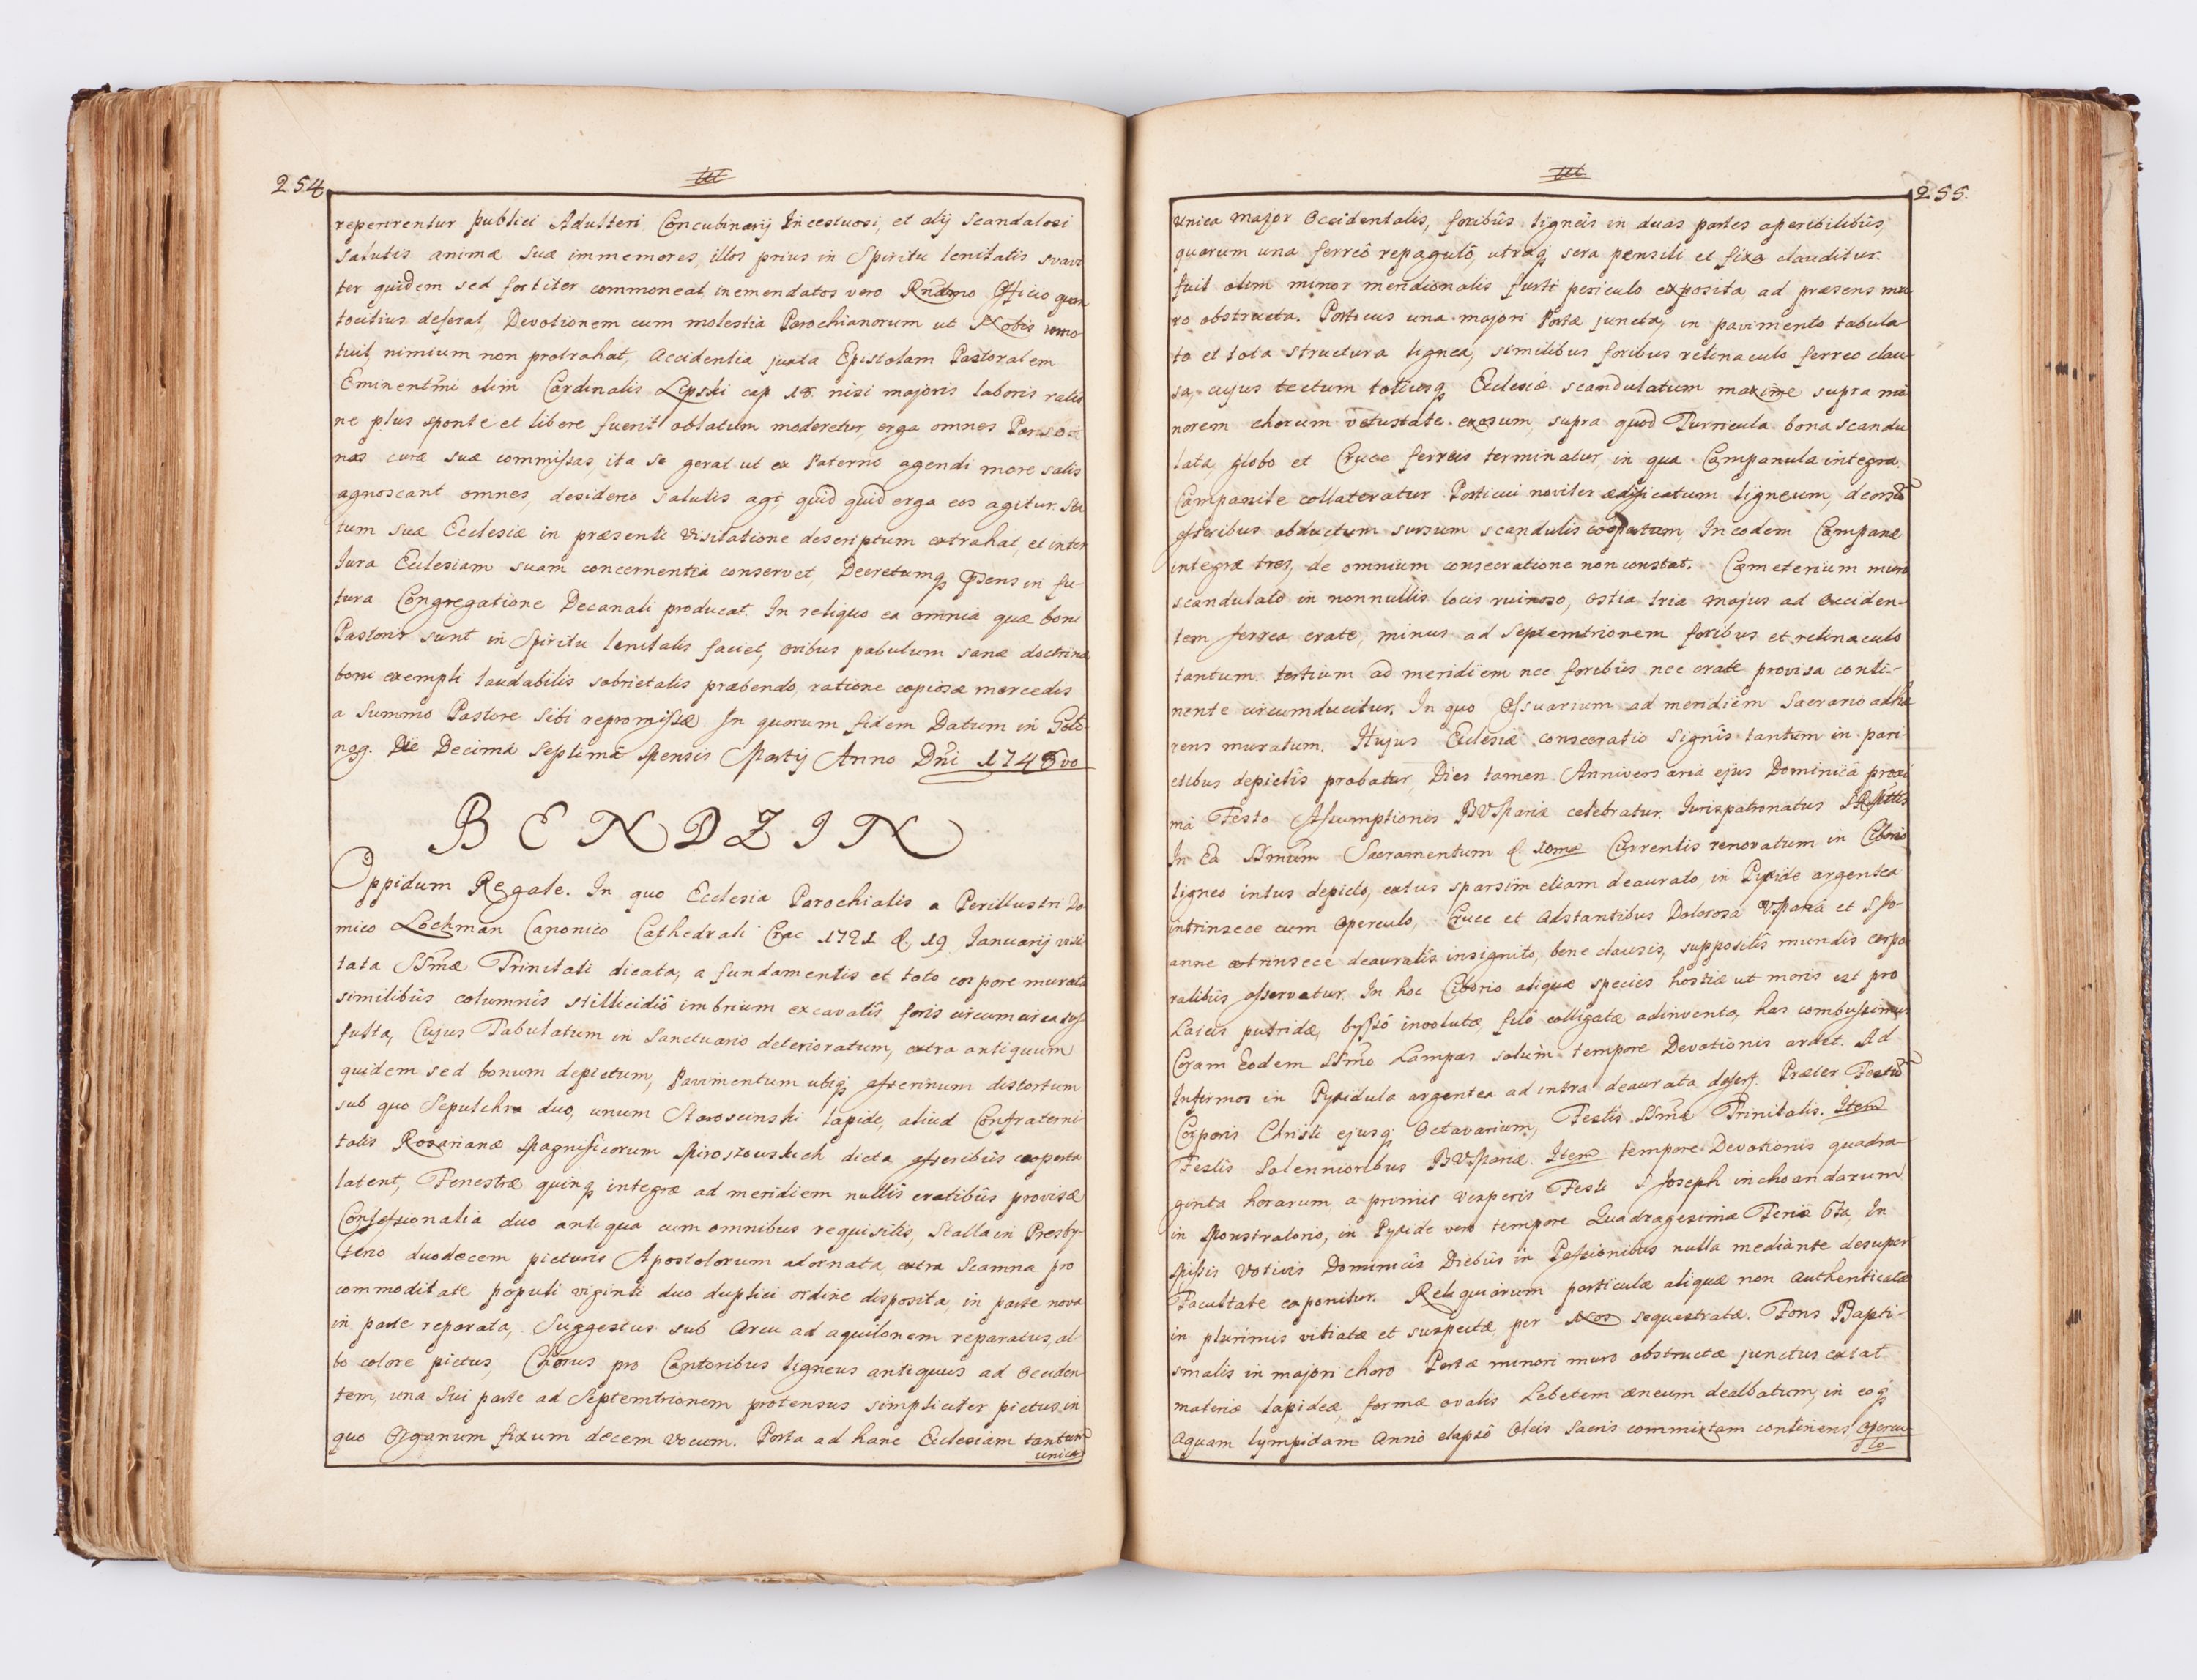 254
reperirentur publici Adulteri Concubinarij Incestuosi, et alij Scandalosi
salutis animæ suæ immemores, illos prius in Spiritu lenitatis svavi
ter quidem sed fortiter commoneat, inemendatos vero Rndmo Officio quan
tocitius deferat, Devotionem cum molestia Parochianorum ut Nobis inno
tuit, nimium non protrahat, Accidentia juxta Epistolam Pastoralem
Eminentmi olim Cardinalis Lipski cap 18. nisi majoris laboris ratio
ne plus sponte et libere fuerit oblatum moderetur, erga omnes Perso
nas curæ suæ commissas, ita se gerat ut ex Paterno agendi more satis
agnoscant omnes, desiderio salutis agi, quid quid erga eos agitur. Sta
tum suæ Ecclesiæ in præsenti Visitatione descriptum extrahat, et inter
Jura Ecclesiam suam concernentia conservet, Decretumq psens in fu-
tura Congregatione Decanali producat. In reliquo ea omnia quæ boni
Pastoris sunt in Spiritu lenitatis faciet, ovibus pabulum sanæ doctrinæ
boni exempli laudabilis sobrietatis præbendo, ratione copiosæ mercedis
a Summo Pastore Sibi repromissæ. In quorum fidem Datum in Golo-
nog. Die Decima Septima Mensis Martij Anno Dni 1748vo
BENDZIN
Oppidum Regale. In quo Ecclesia Parochialis a Perillustri Do
mico Lochman Canonico Cathedrali Crac 1721 d. 19 Januarij visi
tata SSmæ Trinitati dicata, a fundamentis et toto corpore murata
similibûs columnîs stillicidiô imbrium excavatîs foris circumcirca suf-
fulta, Cujus Tabulatum in Sanctuario deterioratum, extra antiquum
quidem sed bonum depictum, Pavimentum ubiq asserinum distortum
sub quo Sepulchra duo, unum Staroscinski lapide, aliud Confraterni
tatis Rosarianæ Magnificorum Miroszouskich dicta asseribûs cooperta
latent, Fenestræ quinq integræ ad meridiem nullîs cratibûs provisæ
Confessionalia duo antiqua cum omnibus requisitis, Stalla in Presby-
terio duodecem picturis Apostolorum adornata, extra Scamna pro
commoditate populi viginti duo duplici ordine disposita, in parte nova
in parte reparata, Suggestus sub Arcu ad aquilonem reparatus, al-
bo colore pictus, Chorus pro Cantoribus ligneus antiquus ad Occiden
tem, una Sui parte ad Septemtrionem protensus simpliciter pictus, in
quo Organum fixum decem Vocum. Porta ad hanc Ecclesiam tantum
unica
255.
Unica Major Occidentalis, foribûs ligneîs in duas partes aperibilibûs,
quarum una ferreô repagulô, utraq sera pensili et fixa clauditur.
fuit olim minor meridionalis furti periculo exposita, ad præsens mu
ro obstructa. Porticus una majori Portæ juncta, in pavimento tabula
to et tota structura lignea, similibus foribus retinaculo ferreo clau-
sa, cujus tectum totiusq Ecclesiæ scandulatum maxime supra mi
norem chorum vetustate exosum, supra quod Turricula bona scandu
lata, globo et Cruce ferreis terminatur, in qua Campanula integra.
Campanile collateratur Porticui noviter ædificatum ligneum, deorsu
asseribus obductum sursum scandulis coopertum, In eodem Campanæ
integræ tres, de omnium consecratione non constat. Cæmeterium muro
scandulato in nonnullis locis ruinoso, ostia tria majus ad Occiden-
tem ferrea crate, minus ad Septemtrionem foribus et retinaculo
tantum, tertium ad meridiem nec foribûs nec crate provisa conti-
nente circumducitur. In quo Ossuarium ad meridiem Sacrario adhæ
rens muratum. Hujus Ecclesiæ consecratio signîs tantum in pari-
etibus depictîs probatur, Dies tamen Anniversaria ejus Dominicâ proxi
mâ Festo Assumptionis BVMariæ celebratur. Jurispatronatus
In Ea SSmum Sacramentum d. 10mæ Currentis renovatum in Ciborio
ligneo intus depicto, extus sparsim etiam deaurato, in Pyxide argentea
intrinsece cum Operculo, Cruce et Adstantibus Dolorosa VMaria et S. Jo-
anne extrinsece deauratîs insignito, bene clausis, suppositîs mundîs corpo
ralibûs asservatur. In hoc Ciborio aliquæ species hostiæ ut moris est pro
Laicis putridæ, byssô involutæ, filô colligatæ adinventæ, has combussimus
Coram Eodem SSmo Lampas solum tempore Devotionis ardet. Ad
Infirmos in Pyxidula argentea ad intra deaurata defert. Præter Festu
Corporis Christi ejusq Octavarium, Festis SSmæ Trinitatis. Item
Festis Solennioribus BVMariæ. Item tempore Devotionis quadra-
ginta horarum a primis Vesperis Festi S Joseph inchoandarum
in Monstratorio, in Pyxide vero tempore Quadragesimæ Feriâ 6ta, In
Missis Votivis Dominicis Diebûs in Passionibus nulla mediante desuper
Facultate exponitur. Reliquiarum particulæ aliquæ non Authenticatæ
in plurimis vitiatæ et suspectæ per Nos sequestratæ. Fons Bapti-
smalis in majori choro Portæ minori muro obstructæ junctus extat
materiæ lapideæ, formæ ovalis Lebetem æneum dealbatum, in eoq
Aquam lympidam Annô elapsô Oleis Sacris commixtam continens, Opercu-
lo